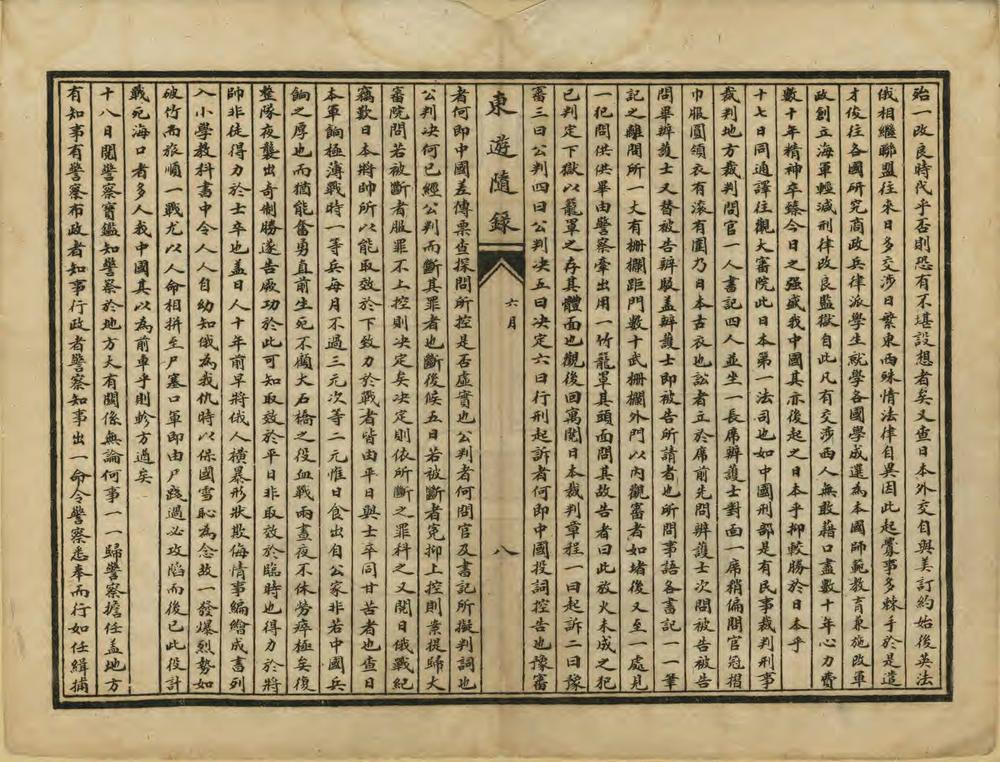 殆一改良時代乎否則恐有不堪設想者矣又查日本外交自與美訂約始後英法
俄相繼聯盟往來日多交涉日繁東西殊情法律自異因此起釁事多棘手於是遣
才俊往各國研究商政兵律派學生就學各國學成選為本國師範教育兼施改革
政創立海軍輕減刑律改良監獄自此凡有交涉西人無敢藉口盡數十年心力費
數十年精神卒臻今日之强盛我中國其亦後起之日本乎抑較勝於日本乎
十七日同通譯往觀大審院此日本第一法司也如中國刑部是有民事裁判刑事
裁判地方裁判問官一人書記四人並坐一長席辯護士對面一席稍偏問官冠摺
巾服圓領衣有滚有團乃日本古衣也訟者立於席前先問辨護士次問被告被告
問畢辦護士又替被告辨駁盖辯護士即被告所請者也所問事語各書記一一筆
記之離問所一丈有栅欄距門數十武栅欄外門以內觀審者如堵後又至一處見
一犯問供供畢由警察牽出用一竹籠罩其頭面問其故告者曰此放火未成之犯
已判定下獄以籠罩之存其體面也觀後回寓閱日本裁判章程一曰起訴二曰豫
審三曰公判四曰公判决五曰决定六曰行刑起訴者何即中國投詞控告也豫審
東遊隨錄
六月
八
者何即中國差傳票查探問所控是否虛實也公判者何問官及書記所擬判詞也
公判决何已經公判而斷其罪者也斷後候五日若被斷者寃抑上控則案提歸大
審院問若被斷者服罪不上控則决定矣决定則依所斷之罪科之又閱日俄戰紀
竊歎日本將帥所以能取效於下致力於戰者皆由平日與士卒同甘苦者也查日
本軍餉極薄戰時一等兵每月不過三元次等二元惟日食出自公家非若中國兵
餉之厚也而猶能奮勇直前生死不顧大石橋之役血戰兩晝夜不休勞瘁極矣復
整隊夜襲出奇制勝遂告厥功於此可知取效於平日非取效於臨時也得力於將
帥非徒得力於士卒也盖日人十年前早將俄人橫暴形狀欺侮情事編繪成書列
入小學教科書中令人人自幼知俄為我仇時以保國雪恥為念故一發爆烈勢如
破竹而旅順一戰尤以人命相拼至尸塞口軍即由尸踐過必攻陷而後已此役計
戰死海口者多人我中國其以為前車乎則軫方遒矣
十八日閱警察寶鑑知警察於地方大有關係無論何事一一歸警察擔任盖地方
有知事有警察布政者知事行政者警察知事出一命令警察悉奉而行如任緝捕